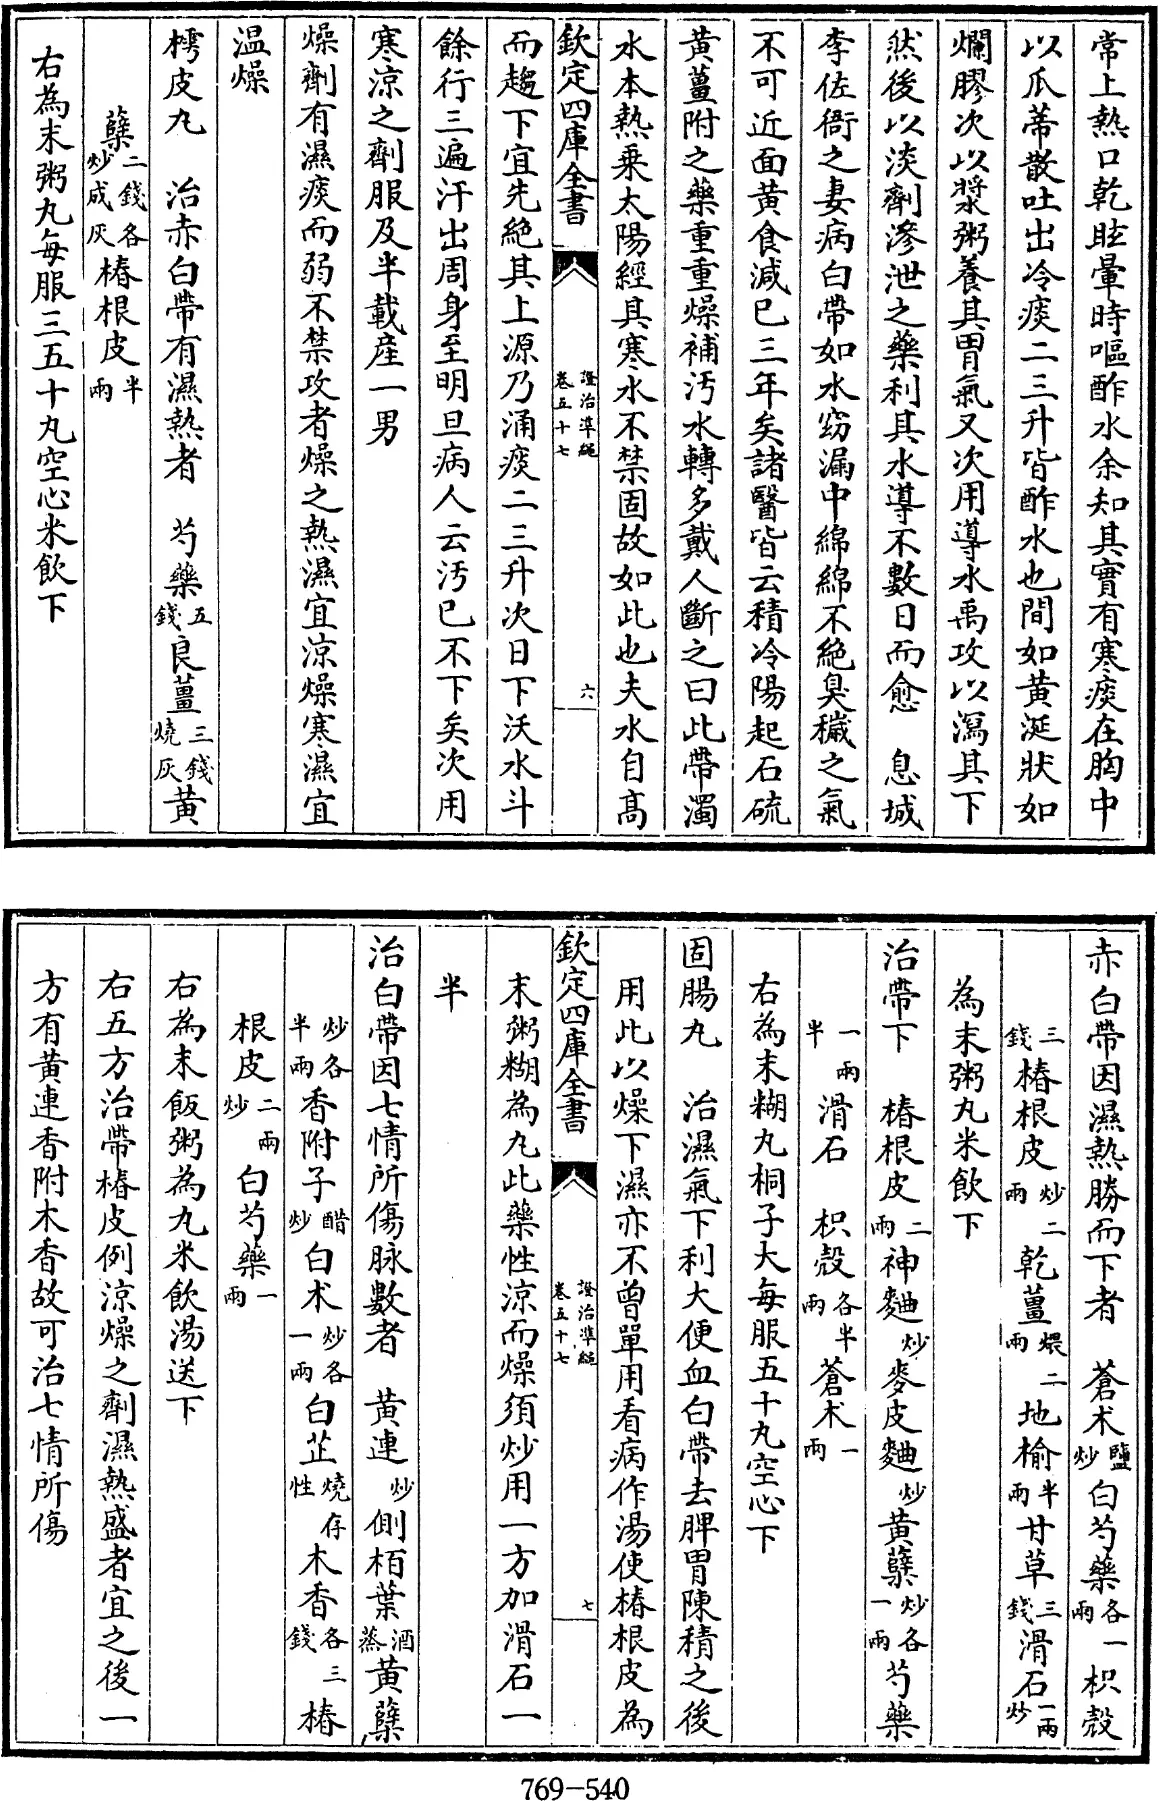 常上熱口乾眩暈時嘔酢水余知其實有寒痰在胸中
以瓜蒂散吐出冷痰二三升皆酢水也間如黃涎狀如
爛膠次以漿粥養其胃氣又次用導水禹攻以瀉其下
然後以淡劑滲泄之藥利其水導不數日而愈　息城
李佐衙之妻病白帶如水窈漏中綿綿不絕臭穢之氣
不可近面黃食減已三年矣諸醫皆云積冷陽起石硫
黃薑附之藥重重燥補汚水轉多戴人斷之曰此帶濁
水本熱乗太陽經其寒水不禁固故如此也夫水自高
欽定四庫全書
證治準繩
卷五十七
六
而趨下宜先絕其上源乃涌痰二三升次日下沃水斗
餘行三遍汗出周身至明旦病人云汚已不下矣次用
寒涼之劑服及半載産一男
燥劑有濕痰而弱不禁攻者燥之熱濕宜涼燥寒濕宜
温燥
樗皮丸　治赤白帶有濕熱者　芍藥五錢良薑三錢燒灰黃
蘗二錢各炒成灰椿根皮半兩
右為末粥丸每服三五十丸空心米飲下
赤白帶因濕熱勝而下者　蒼术鹽炒白芍藥各一兩枳殼
三錢椿根皮炒二兩乾薑煨二兩地榆半兩甘草三錢滑石一兩炒
為末粥丸米飲下
治帶下　椿根皮二兩神麯炒麥皮麯炒黃蘗炒各一兩芍藥
一兩半滑石　枳殼各半兩蒼术一兩
右為末糊丸桐子大每服五十丸空心下
固腸丸　治濕氣下利大便血白帶去脾胃陳積之後
用此以燥下濕亦不曾單用看病作湯使椿根皮為
欽定四庫全書
證治準繩
卷五十七
七
末粥糊為丸此藥性涼而燥須炒用一方加滑石一
半
治白帶因七情所傷脉數者　黃連炒側栢葉酒蒸黃蘗
炒各半兩香附子醋炒白术炒各一兩白芷燒存性木香各三錢椿
根皮二兩炒白芍藥一兩
右為末飯粥為丸米飲湯送下
右五方治帶椿皮例涼燥之劑濕熱盛者宜之後一
方有黃連香附木香故可治七情所傷
769-540